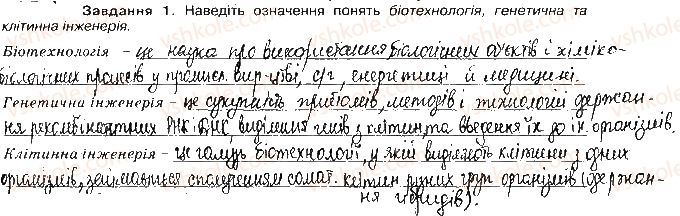 Завдання 1. Наведіть означення понять біотехнологія, генетична та
клітинна інженерія.
Біотехнологія – це наука про використання біологічних об'єктів і хіміко-
біологічних процесів у промисл. вир-цтві, с/г, енергетиці й медицині.
Генетична інженерія – це сукупність прийомів, методів і технологій одержан-
ня рекомбінантних РНК і ДНК, виділення генів з клітин та введення їх до ін. організмів.
Клітинна інженерія – це галузь біотехнології, у якій виділяють клітини з одних
організмів, займається сполученням сомат. клітин різних груп організмів (одержан-
ня гібридів).